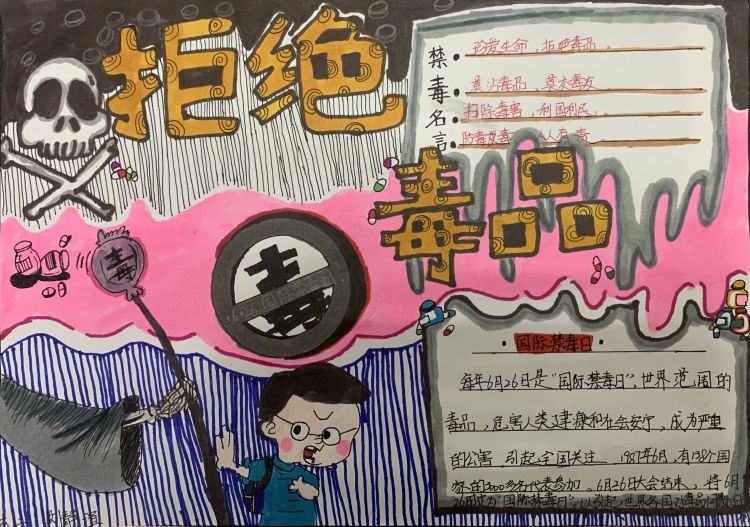 拒绝
毒品
禁毒名言
珍爱生命，拒绝毒品。
莫沾毒品，莫交毒友
扫除毒害，利国利民，
防毒反毒，人人有责
毒
毒
6.26国际
国际禁毒日
每年6月26日是“国际禁毒日”，世界范围的
毒品，危害人类健康和社会安宁，成为严重
的公害，引起全国关注，1987年6月，有138个国
家的3000多名代表参加，6月26日大会结束，将6月
26日定为“国际禁毒日”，以引起世界各国对毒品问题